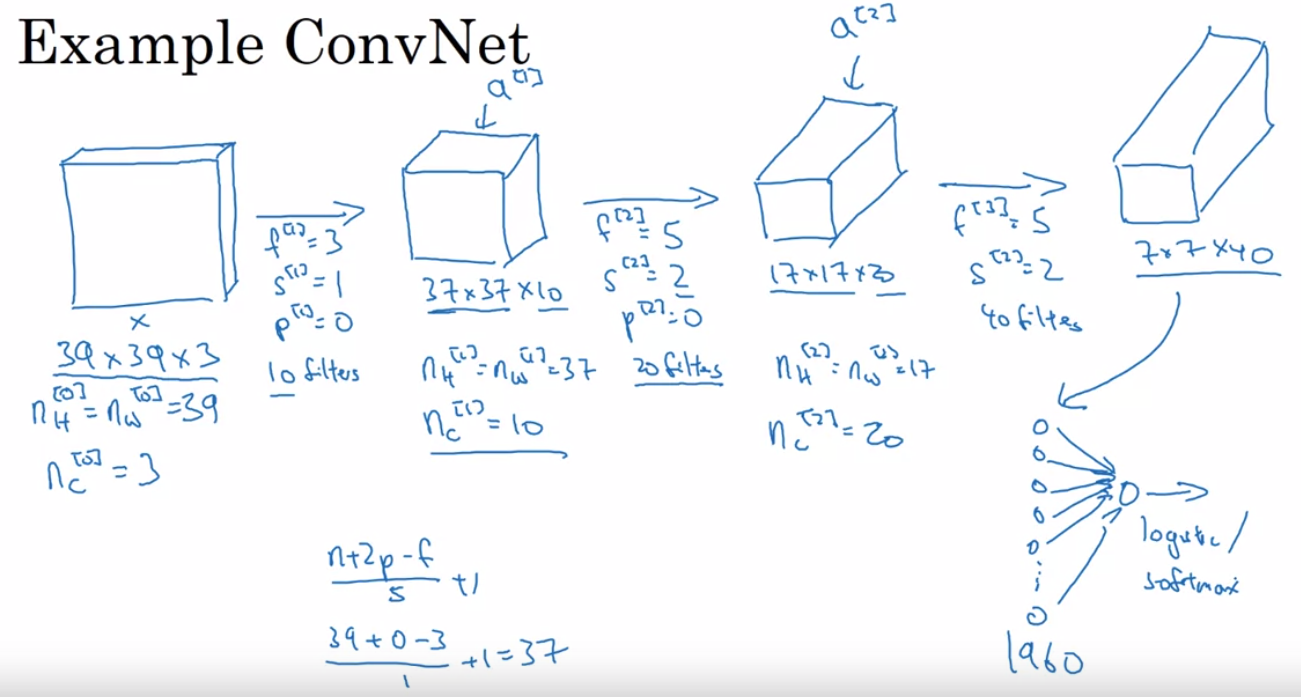 Example ConvNet
a^[1]
a^[2]
x
39×39×3
n_H^[0] = n_W^[0] = 39
n_C^[0] = 3
f^[1] = 3
s^[1] = 1
p^[1] = 0
10 filters
37×37×10
n_H^[1] = n_W^[1] = 37
n_C^[1] = 10
f^[2] = 5
s^[2] = 2
p^[2] = 0
20 filters
17×17×20
n_H^[2] = n_W^[2] = 17
n_C^[2] = 20
f^[3] = 5
s^[2] = 2
40 filters
7×7×40
logistic/
softmax
1960
(n+2p-f)/s +1
(39+0-3)/1 +1 = 37